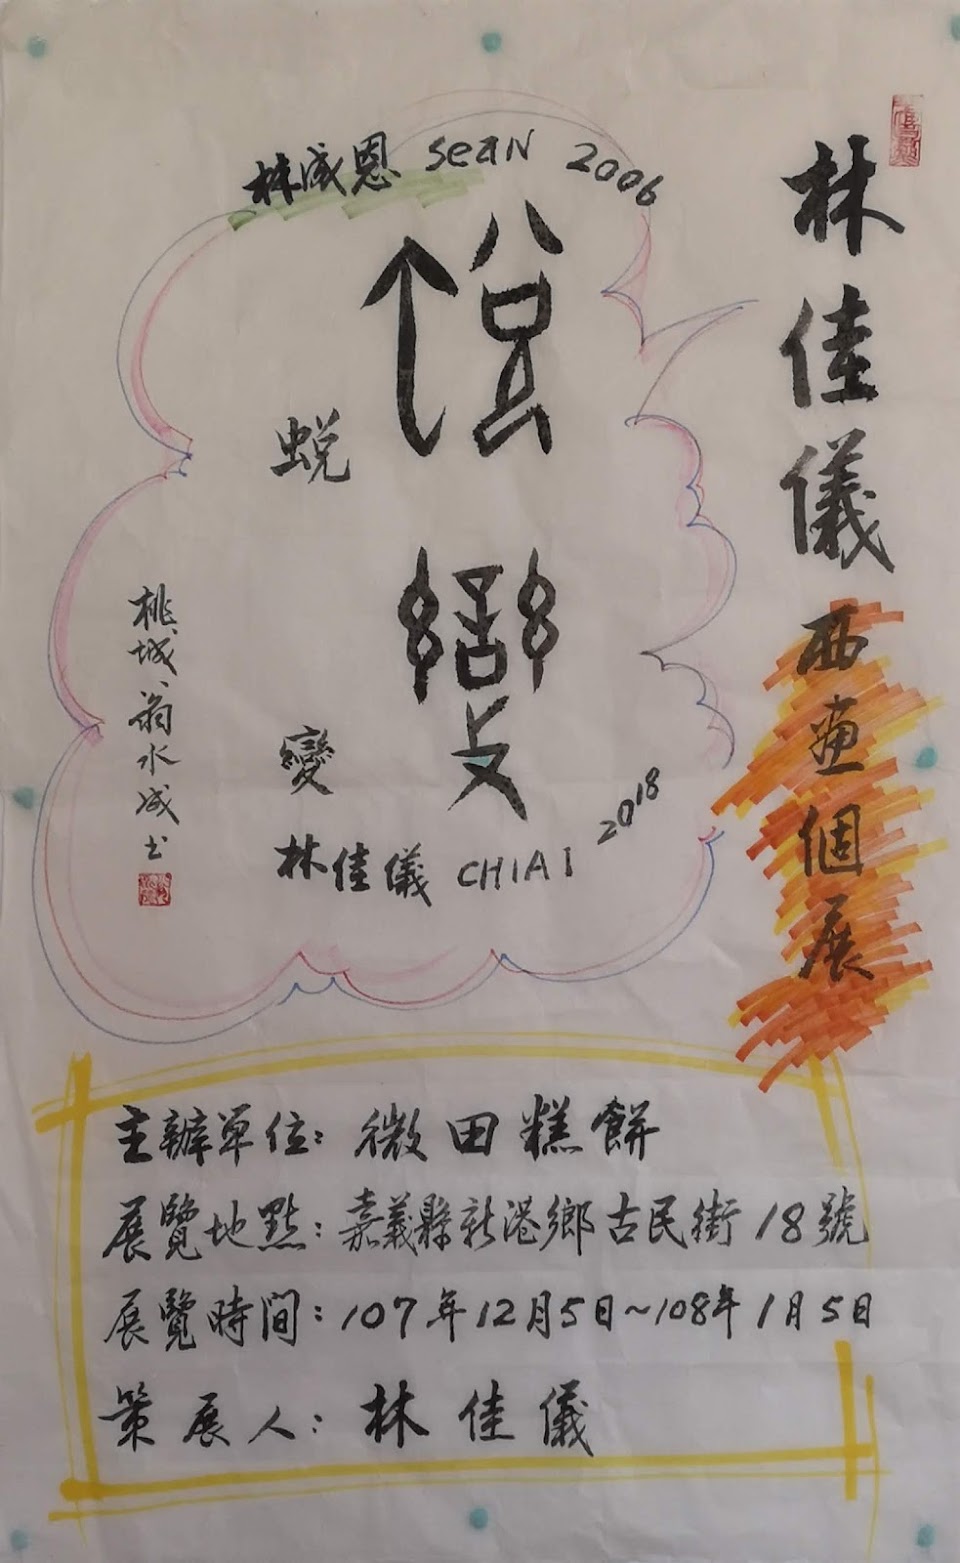 林佳儀西畫個展
林威恩 SEAN 2006
蛻變
蛻
變
林佳儀 CHIAI 2018
桃城、翁水成書
主辦單位：微田糕餅
展覽地點：嘉義縣新港鄉古民街18號
展覽時間：107年12月5日~108年1月5日
策展人：林佳儀